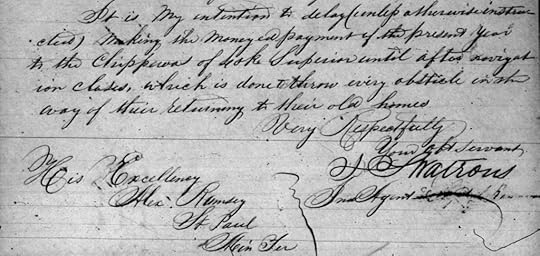 It is, My intention to delay (unless otherwise instru
cted) Making the Money ed payment of the present Year
to the Chippewas of Lake Superior until after navigat
ion closes, which is done t throw every obsticle in the
way of their returning to their old homes
Very Respectfully
Your obt Servant
J S Watrous
Ind Agent
His Excellency
Alex. Ramsey
St Paul
Min Ter